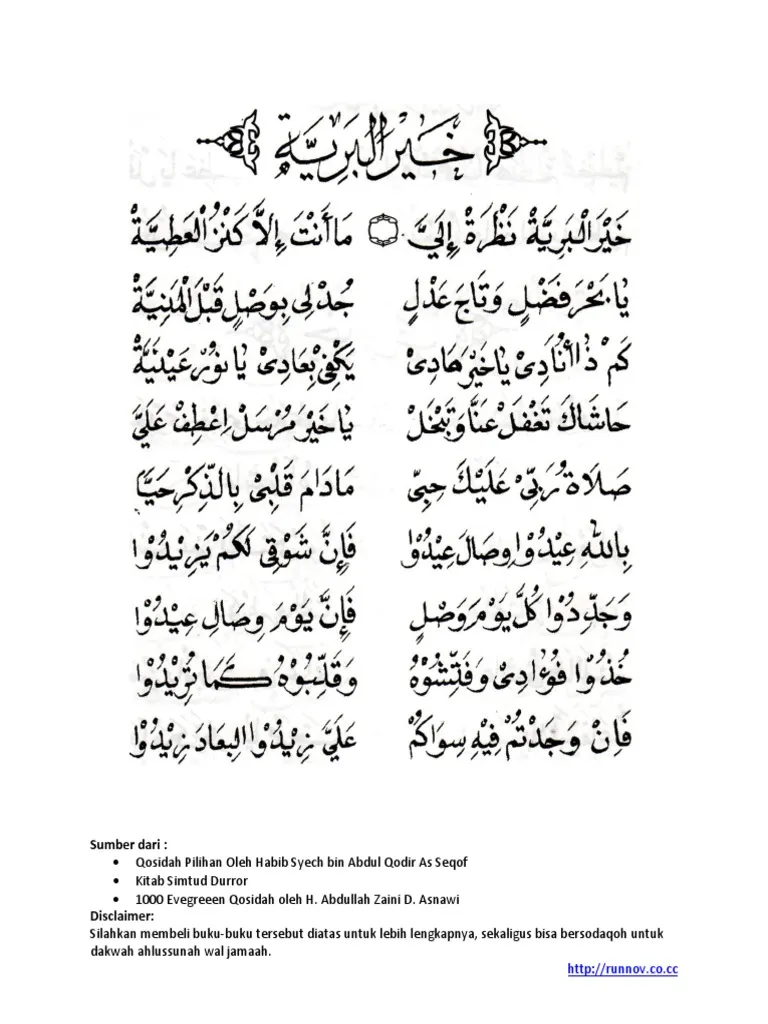 خَيْرَ الْبَرِيَّةْ
خَيْرَ الْبَرِيَّةْ نَظْرَةْ إِلَيَّ ۞ مَا أَنْتَ إِلاَّ كَنْزُ الْعَطِيَّةْ
يَا بَحْرَ فَضْلٍ وَتَاجَ عَدْلٍ جُدْلِى بِوَصْلٍ قَبْلَ الْمَنِيَّةْ
كَمْ ذَا أُنَادِىْ يَا خَيْرَ هَادِىْ يَكْفِىْ بِعَادِىْ يَا نُوْرَ عَيْنَيَّةْ
حَاشَاكَ تَغْفَلْ عَنَّا وَتَبْخَلْ يَا خَيْرَ مُرْسَلْ اِعْطِفْ عَلَيَّ
صَلَاةُ رَبِّىْ عَلَيْكَ حِبِّىْ مَادَامَ قَلْبِىْ بِالذِّكْرِ حَيًّا
بِاللهِ عِيْدُوْا وِصَالَ عِيْدُوْا فَإِنَّ شَوْقِى لَكُمْ يَزِيْدُوْا
وَجَدِّدُوْا كُلَّ يَوْمَ وَصْلٍ فَإِنَّ يَوْمَ وِصَالِ عِيْدُوْا
خُذُوْا فُؤَادِىْ وَفَتِّشُوْهُ وَقَلِّبُوْهُ كَمَا تُرِيْدُوْا
فَإِنْ وَجَدْتُمْ فِيْهِ سِوَاكُمْ عَلَيَّ زِيْدُوْا الْبِعَادَ زِيْدُوْا
Sumber dari :
• Qosidah Pilihan Oleh Habib Syech bin Abdul Qodir As Seqof
• Kitab Simtud Durror
• 1000 Evegreeen Qosidah oleh H. Abdullah Zaini D. Asnawi
Disclaimer:
Silahkan membeli buku-buku tersebut diatas untuk lebih lengkapnya, sekaligus bisa bersodaqoh untuk
dakwah ahlussunah wal jamaah.
http://runnov.co.cc